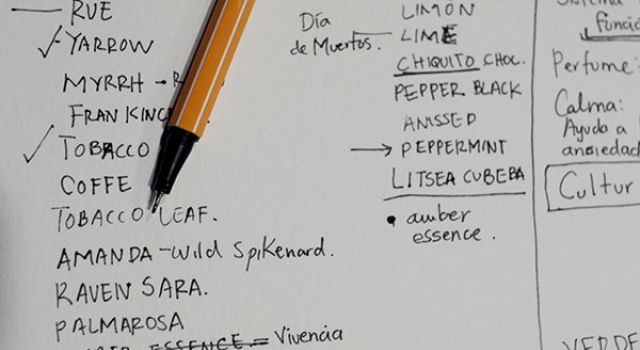 RUE
YARROW
MYRRH -
TOBACCO
COFFE
TOBACCO LEAF.
AMANDA - Wild Spikenard.
RAVEN SARA.
PALMAROSA
ESSENCE = Vivencia
Día
de Muertos.
LIMÓN
LIME
CHIQUITO CHOC.
PEPPER BLACK
ANISSED
PEPPERMINT
LITSEA CUBEBA
amber
essence.
Perfume:
Calma:
Ayuda a
ansiedad
Cultur